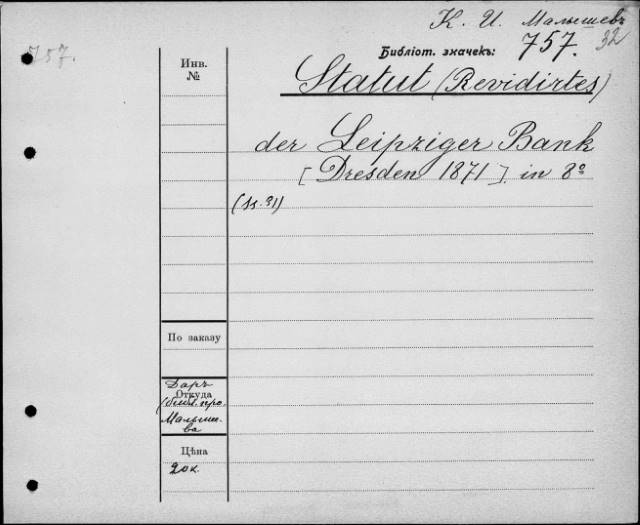 К. И. Малышевъ
757.
Библіот. значекъ: 757. 32
Инв.
№
Statut (Revidirtes)
der Leipziger Bank
[Dresden 1871] in 8º
(ss. 31)
По заказу
Даръ
Откуда
(библ. про.
Малыше-
ва
Цѣна
20 к.